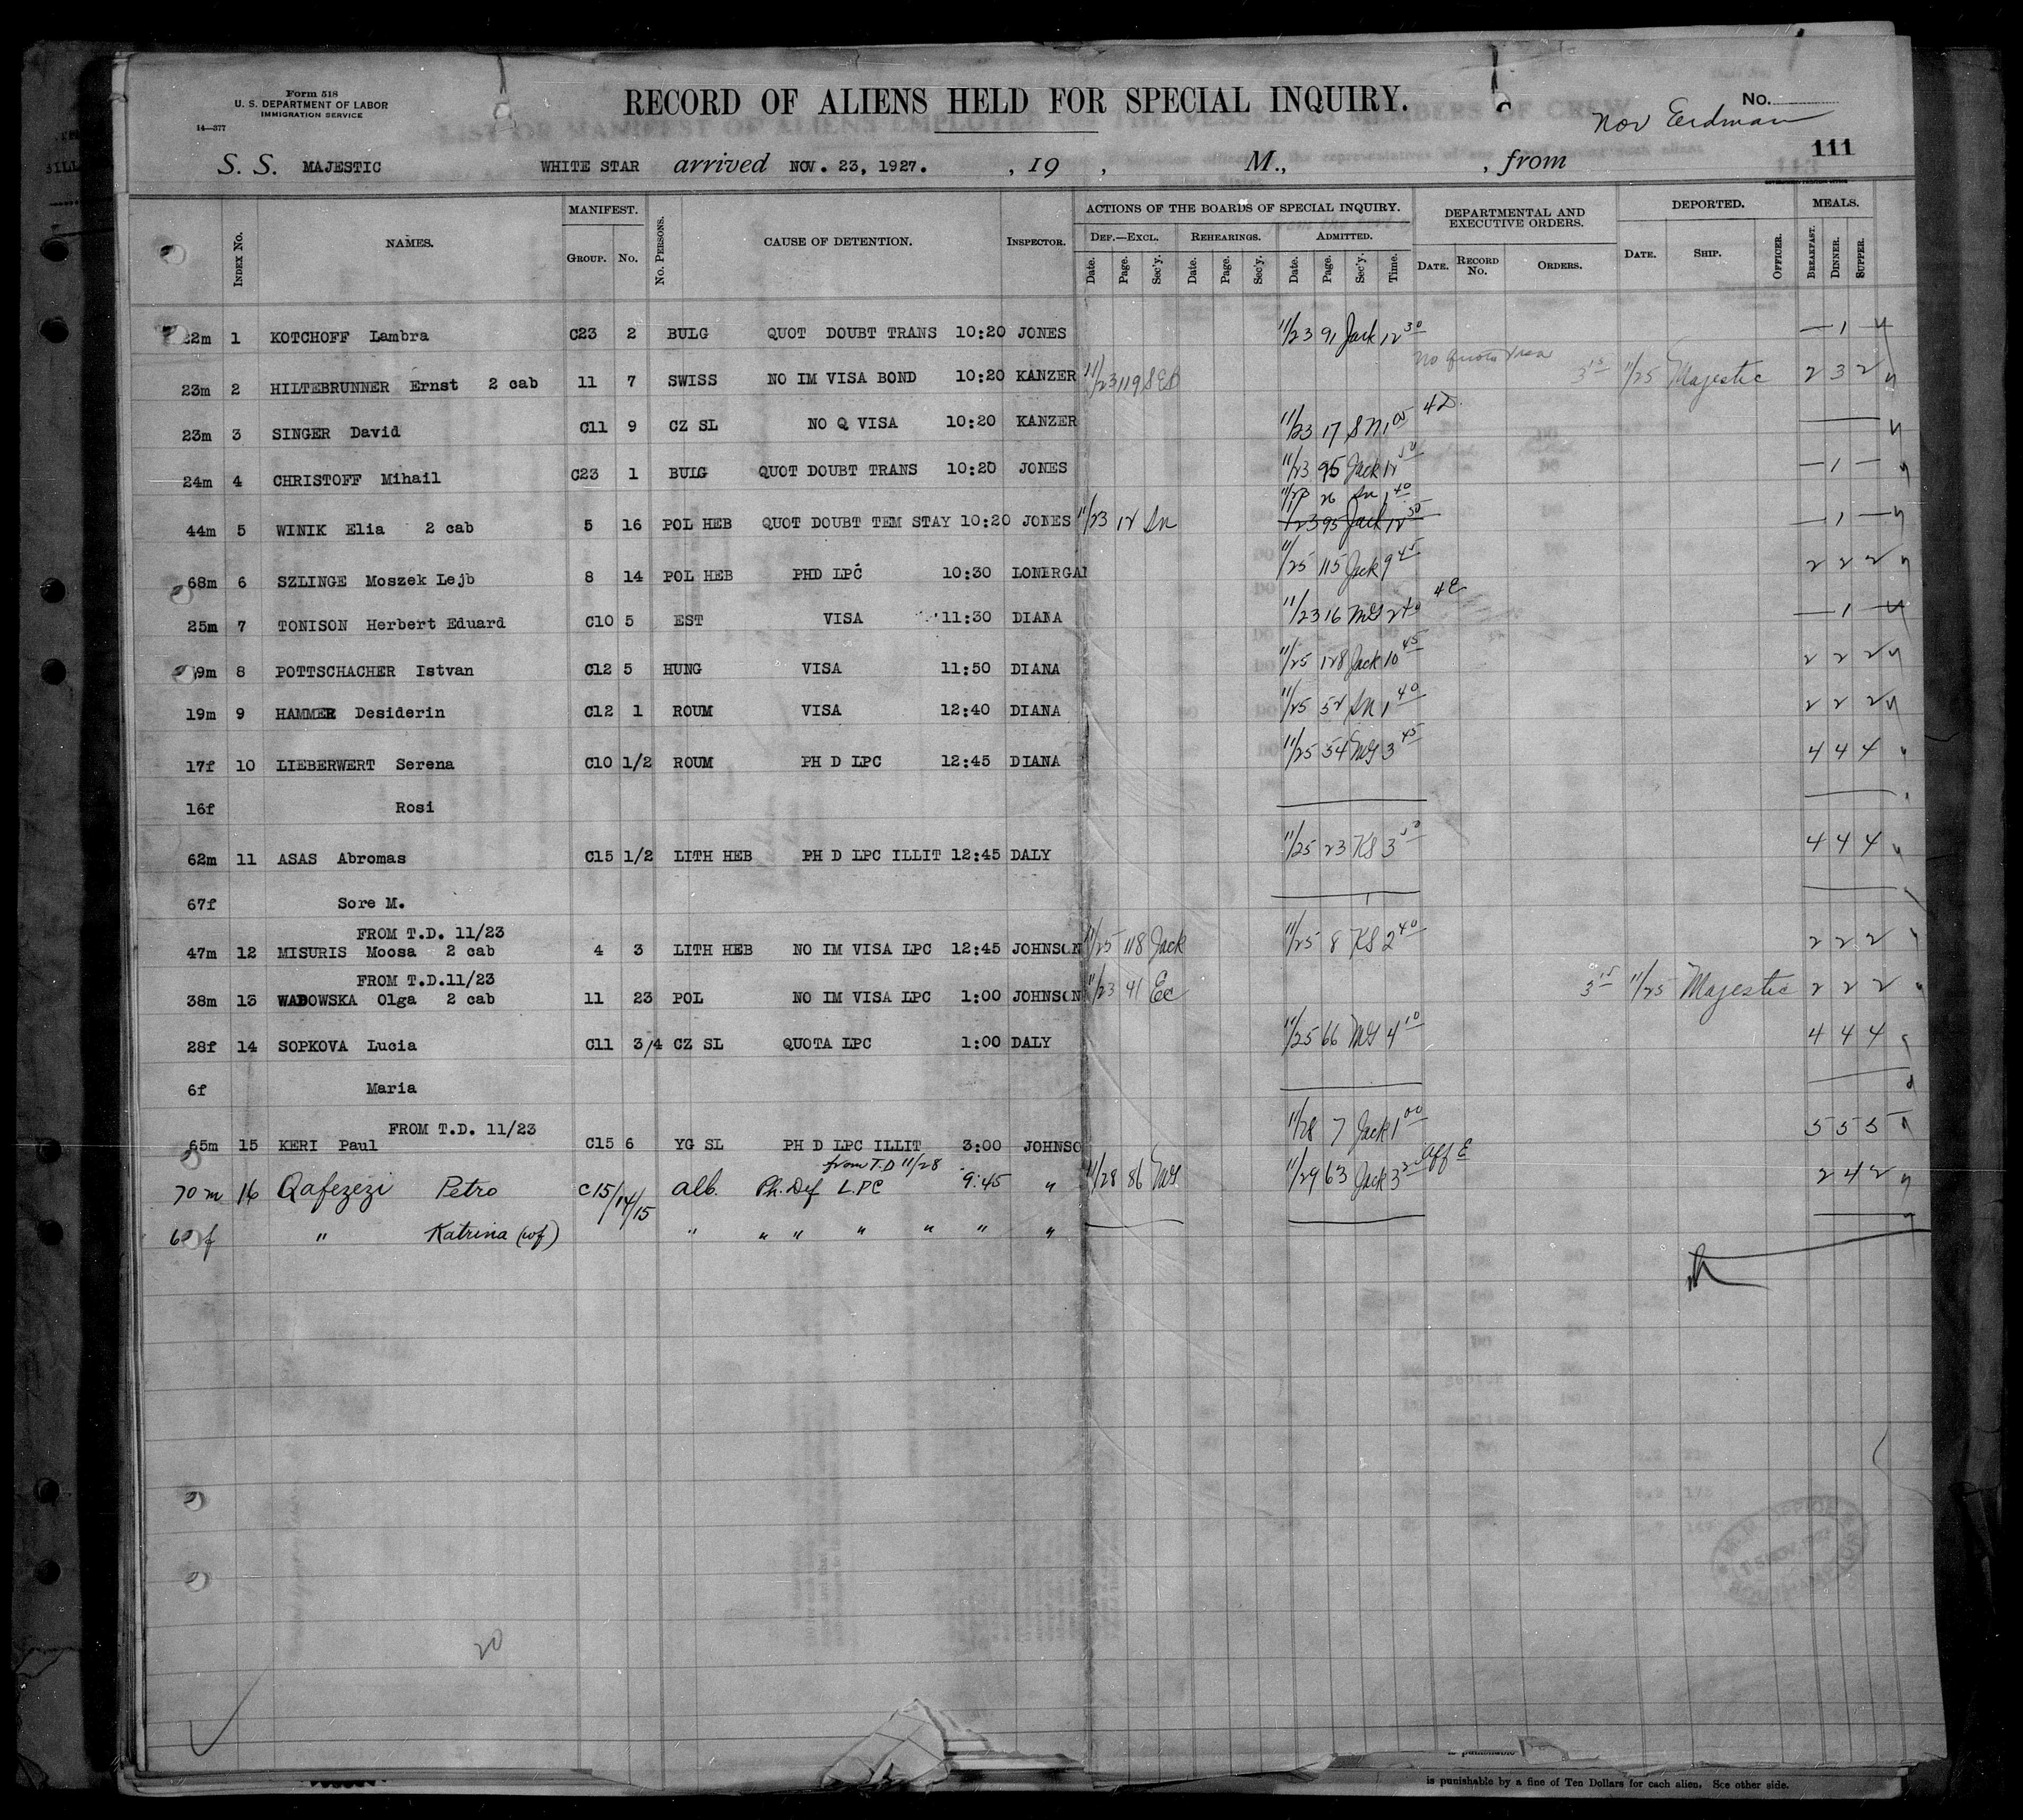 Form 518
U. S. DEPARTMENT OF LABOR
IMMIGRATION SERVICE
14—377
RECORD OF ALIENS HELD FOR SPECIAL INQUIRY.
No.
Nov Erdman
111
S. S. MAJESTIC WHITE STAR arrived NOV. 23, 1927. , 19 , M., , from
INDEX No. NAMES. MANIFEST. GROUP. No. No. PERSONS. CAUSE OF DETENTION. INSPECTOR.
ACTIONS OF THE BOARDS OF SPECIAL INQUIRY. DEPARTMENTAL AND EXECUTIVE ORDERS. DEPORTED. MEALS.
DEF.—EXCL. REHEARINGS. ADMITTED.
Date. Page. Sec'y. Date. Page. Sec'y. Date. Page. Sec'y. Time. DATE. RECORD No. ORDERS. DATE. SHIP. OFFICER. BREAKFAST. DINNER. SUPPER.
22m 1 KOTCHOFF Lambra C23 2 BULG QUOT DOUBT TRANS 10:20 JONES 11/23 91 Jack 12 30 — 1 —
No Quota Visa
23m 2 HILTEBRUNNER Ernst 2 cab 11 7 SWISS NO IM VISA BOND 10:20 KANZER 11/23 119 SED 3 15 11/25 Majestic 2 3 2
23m 3 SINGER David C11 9 CZ SL NO Q VISA 10:20 KANZER 11/23 17 SN 1 00 4D
24m 4 CHRISTOFF Mihail C23 1 BULG QUOT DOUBT TRANS 10:20 JONES 11/23 95 Jack 12 50 — 1 —
11/23 26 Sn 1 40
44m 5 WINIK Elia 2 cab 5 16 POL HEB QUOT DOUBT TEM STAY 10:20 JONES 11/23 12 Sn 11/23 95 Jack 12 50 — 1 —
68m 6 SZLINGE Moszek Lejb 8 14 POL HEB PHD LPC 10:30 LONERGAN 11/25 115 Jack 9 45 2 2 2
25m 7 TONISON Herbert Eduard C10 5 EST VISA 11:30 DIANA 11/23 16 MG 2 40 4E — 1 —
9m 8 POTTSCHACHER Istvan C12 5 HUNG VISA 11:50 DIANA 11/25 128 Jack 10 45 2 2 2
19m 9 HAMMER Desiderin C12 1 ROUM VISA 12:40 DIANA 11/25 52 Sn 1 40 2 2 2
17f 10 LIEBERWERT Serena C10 1/2 ROUM PH D LPC 12:45 DIANA 11/25 54 MG 3 45 4 4 4
16f Rosi
62m 11 ASAS Abromas C15 1/2 LITH HEB PH D LPC ILLIT 12:45 DALY 11/25 23 KS 3 50 4 4 4
67f Sore M.
FROM T.D. 11/23
47m 12 MISURIS Moosa 2 cab 4 3 LITH HEB NO IM VISA LPC 12:45 JOHNSON 11/25 118 Jack 11/25 8 KS 2 40 2 2 2
FROM T.D.11/23
38m 13 WADOWSKA Olga 2 cab 11 23 POL NO IM VISA LPC 1:00 JOHNSON 11/23 41 Ec 3 15 11/25 Majestic 2 2 2
28f 14 SOPKOVA Lucia C11 3/4 CZ SL QUOTA LPC 1:00 DALY 11/25 66 MG 4 10 4 4 4
6f Maria
FROM T.D. 11/23
65m 15 KERI Paul C15 6 YG SL PH D LPC ILLIT 3:00 JOHNSO 11/28 7 Jack 1 00 5 5 5
from T.D 11/28
70m 16 Qafezezi Petro C15/14/15 Alb. Ph. Def L.P.C 9:45 " 11/28 86 MG 11/29 63 Jack 3 20 Aff E 2 4 2
f " Katrina (wf) " " " " " " "
20
is punishable
is punishable by a fine of Ten Dollars for each alien. See other side.